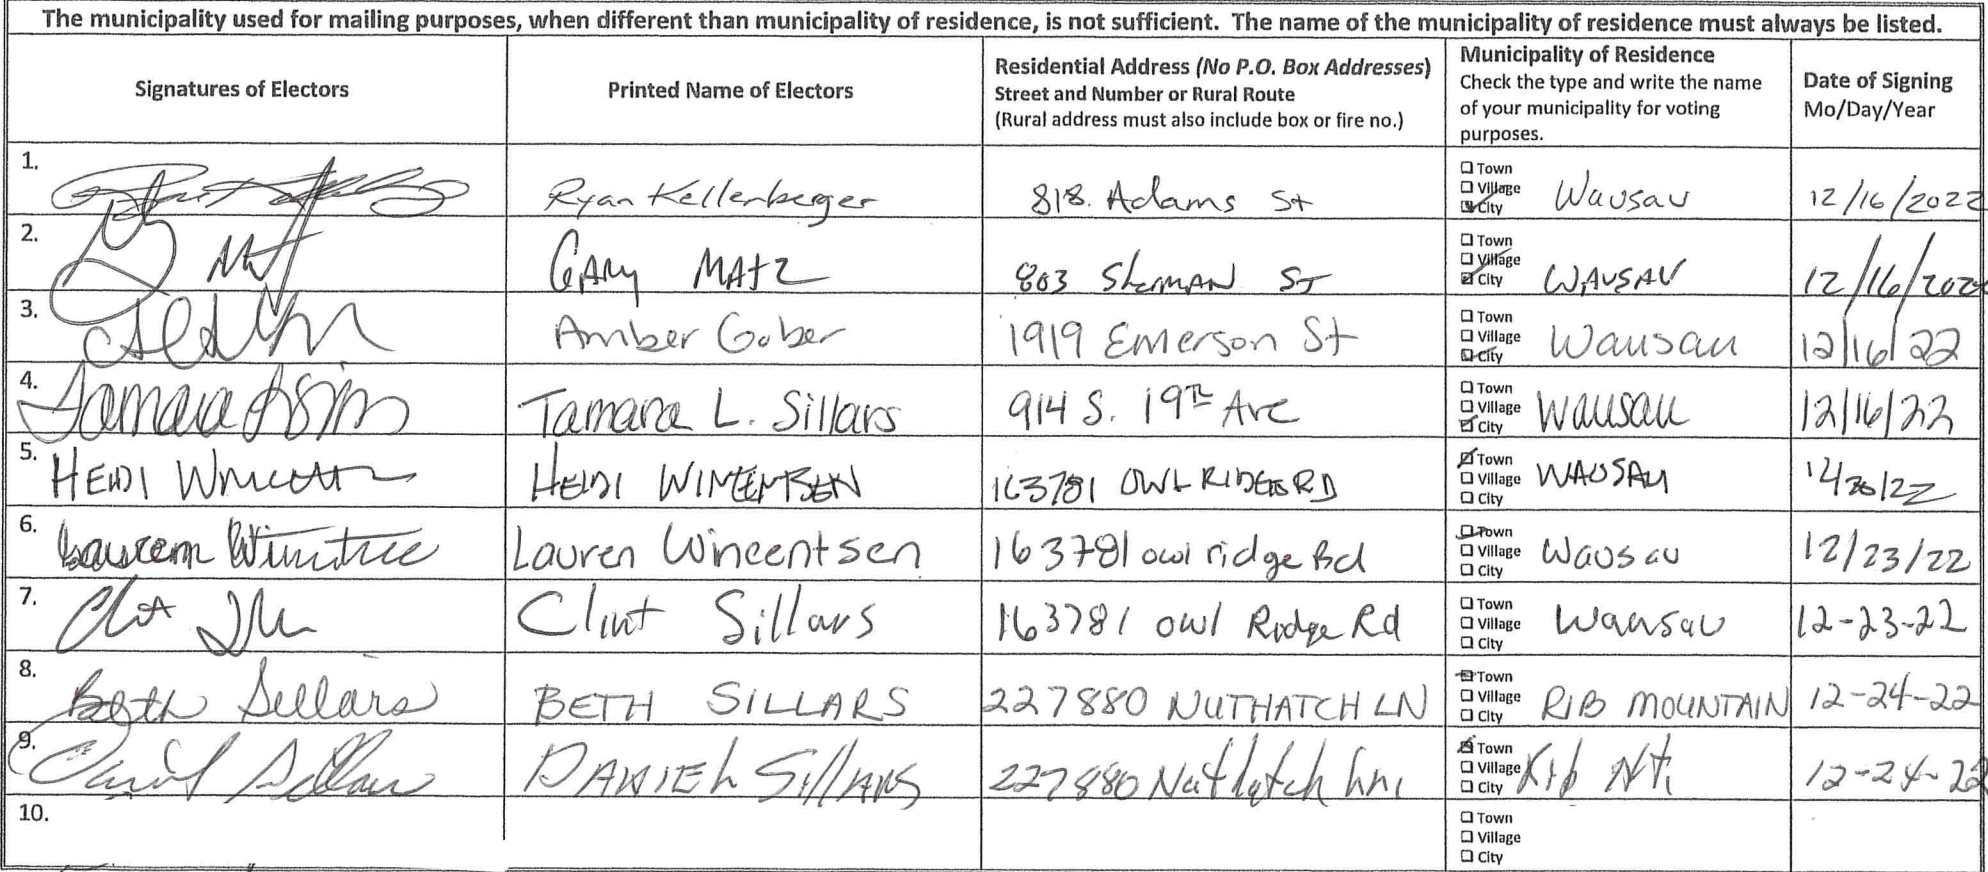 The municipality used for mailing purposes, when different than municipality of residence, is not sufficient. The name of the municipality of residence must always be listed.
Signatures of Electors
Printed Name of Electors
Residential Address (No P.O. Box Addresses)
Street and Number or Rural Route
(Rural address must also include box or fire no.)
Municipality of Residence
Check the type and write the name
of your municipality for voting
purposes.
Date of Signing
Mo/Day/Year
1. Ryan Kellenberger 818. Adams St Town Village City Wausau 12/16/2022
2. GARY MATZ 803 ShermAN ST Town Village City WAUSAU 12/16/202
3. Amber Gober 1919 Emerson St Town Village City Wausau 12/16/22
4. Tamara Tamara L. Sillars 914 S. 19TH Ave Town Village City Wausau 12/16/22
5. HEIDI HEIDI 163781 OWL RIDGE RD Town Village City WAUSAU 12/20/22
6. Lauren Lauren Wincentsen 163781 owl ridge Rd Town Village City Wausau 12/23/22
7. Clint Sillars 163781 owl Ridge Rd Town Village City Wausau 12-23-22
8. Beth Sillars BETH SILLARS 227880 NUTHATCH LN Town Village City RIB MOUNTAIN 12-24-22
9. Sillars DANIEL SillARS 227880 Nuthatch Ln. Town Village City Rib Mt. 12-24-22
10. Town Village City